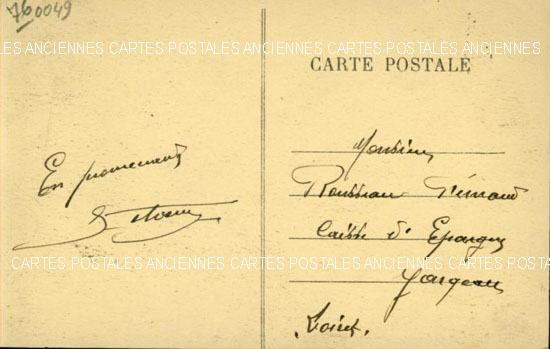 760049
CARTES POSTALES ANCIENNES CARTES POSTALES ANCIENNES CARTES POSTALES ANCIENNES
CARTE POSTALE
En promenade
Monsieur
Rousseau
Caisse d'Epargne
Jargeau
Loiret.
CARTES POSTALES ANCIENNES CARTES POSTALES ANCIENNES CARTES POSTALES ANCIENNES